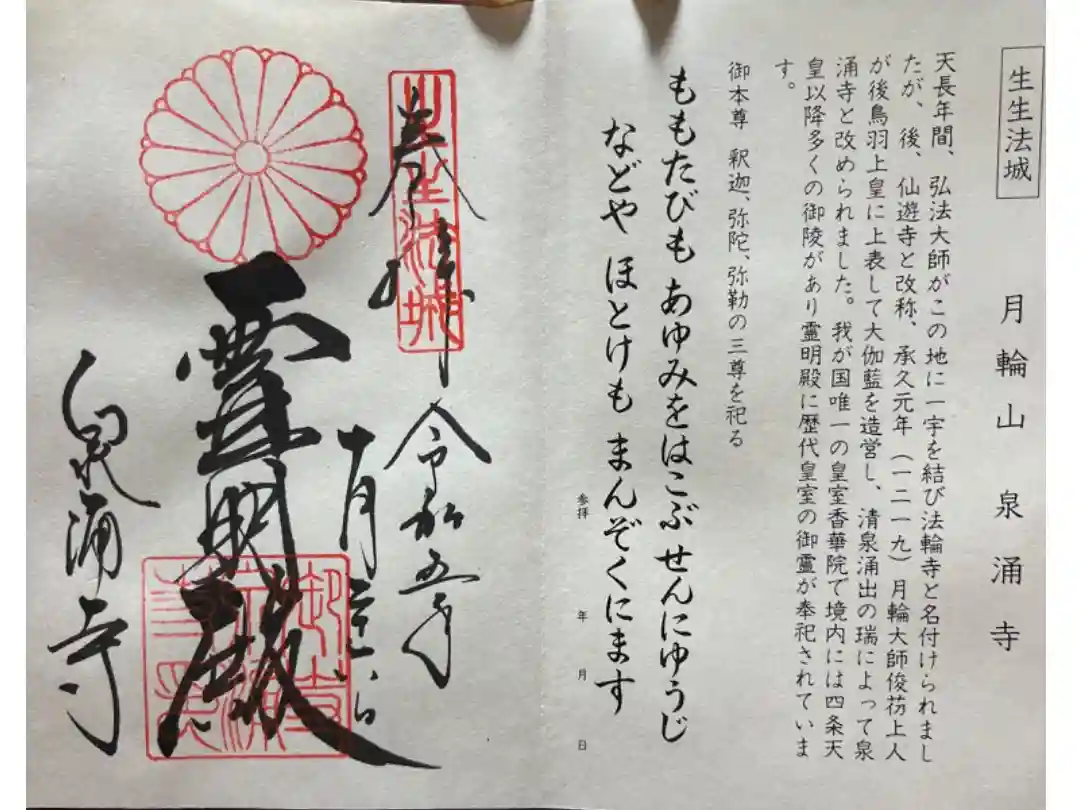 生生法城
月輪山 泉涌寺
天長年間、弘法大師がこの地に一宇を結び法輪寺と名付けられまし
たが、後、仙遊寺と改称、承久元年（一二一九）月輪大師俊芿上人
が後鳥羽上皇に上表して大伽藍を造営し、清泉涌出の瑞によって泉
涌寺と改められました。我が国唯一の皇室香華院で境内には四条天
皇以降多くの御陵があり霊明殿に歴代皇室の御霊が奉祀されていま
す。
御本尊 釈迦、弥陀、弥勒の三尊を祀る
ももたびも あゆみをはこぶ せんにゆうじ
などや ほとけも まんぞくにます
参拝 年 月 日
奉拝
生生法城
令和五年
十月
霊明殿
泉涌寺